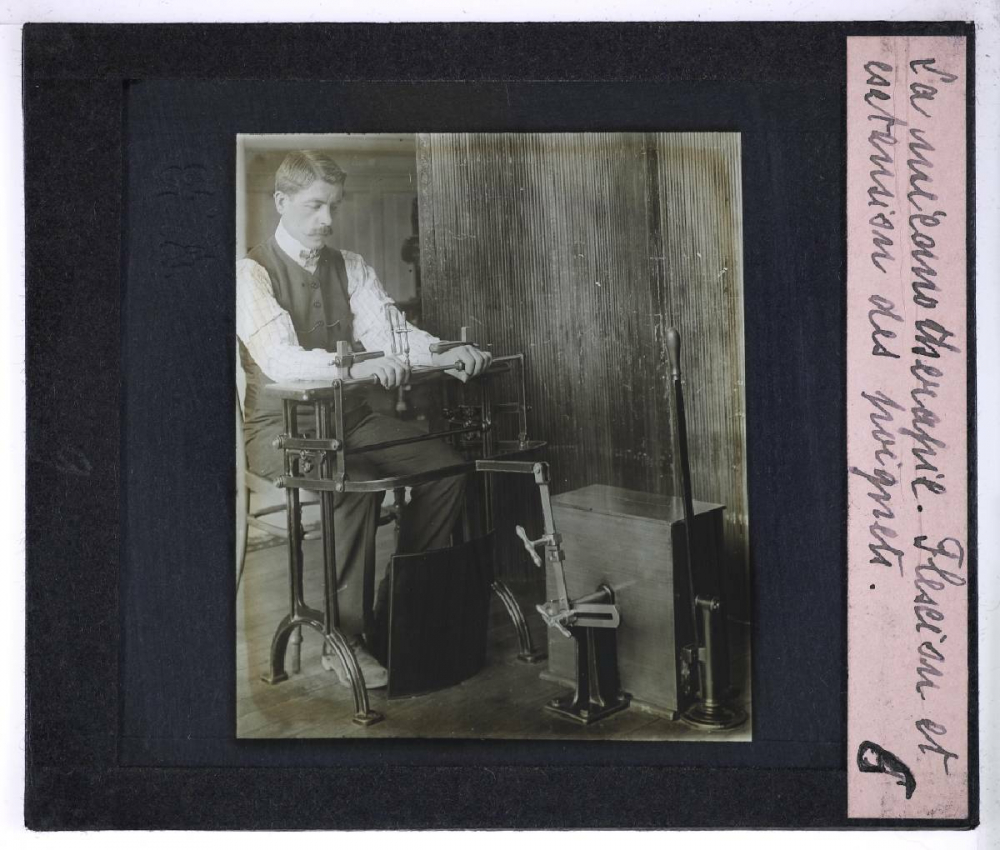 La mécanothérapie. Flexion et
extension des poignets.
6